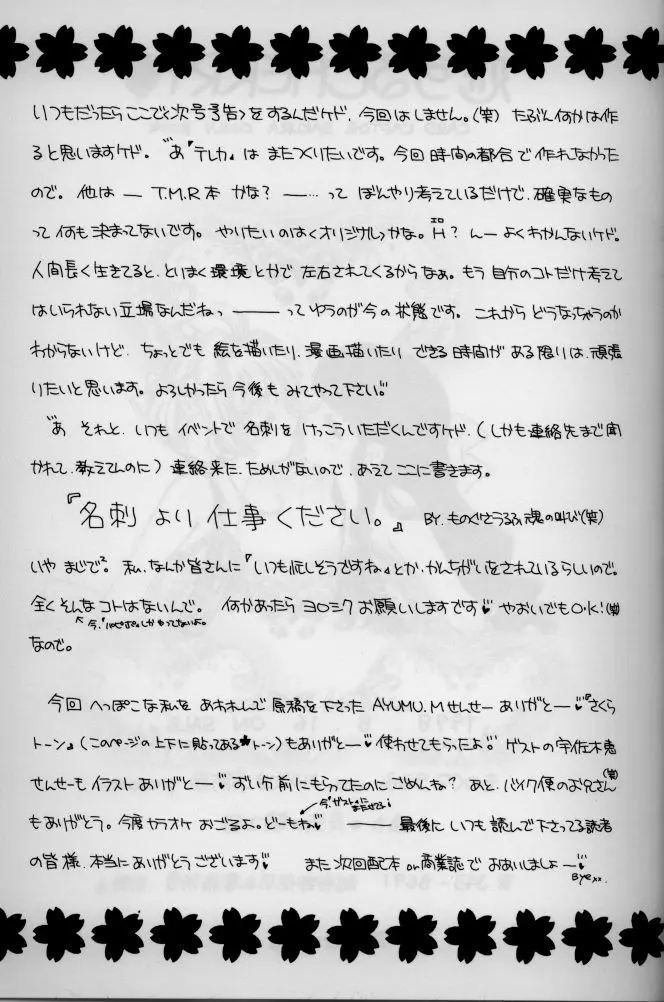 いつもだったらここで〈次号予告〉をするんだケド、今回はしません。(笑) たぶん何かは作
ると思いますケド。"あ『テレカ』は またつくりたいです。今回 時間の都合で作れなかった
ので。他は ― T.M.R本 かな? ―…って ぼんやり考えているだけで、確実なもの
って何も決まってないです。やりたいのは〈オリジナル〉かな。
エロ
H? んー よくわかんないケド。
人間長く生きてると、とりまく環境とかで左右されてくるからなぁ。もう自分のコトだけ考えて
はいられない立場なんだねっ ――― ってゆうのが今の状態です。これからどうなっちゃうのか
わからないけど、ちょっとでも 絵を描いたり、漫画描いたり できる時間が ある限りは、頑張
りたいと思います。よろしかったら今後も みてやって下さい!!
"あ それと、いつも イベントで 名刺を けっこういただくんですケド、(しかも連絡先まで聞
かれて、教えてんのに) 連絡来た、ためしがないので、あえて ここに書きます。
『名刺 より 仕事ください。』 BY.ものぐさうるふ 魂の叫び(笑)
いや まじで。私、なんか皆さんに『いつも忙しそうですね』とか、かんちがいをされているらしいので。
全くそんなコトはないんで。何かあったら ヨロシク お願いしますです♥ やおいでもO・K!(笑)
なので。
今回 へっぽこな私を あわれんで 原稿を下さった AYUMU.Mせんせー ありがとー♥『さくら
トーン』(このページの上下に貼ってあるトーン)もありがとー♥ 使わせてもらったよ!! ゲストの宇佐木恵
せんせーも イラスト ありがとー♥ ずい分前にもらってたのにごめんね? あと、バイク便のお兄さん(笑)
もありがとう。今度カラオケ おごるよ。どーもね♥ ――― 最後に いつも 読んで下さってる読者
の皆様、本当にありがとうございます♥ また 次回配本 or 商業誌で おあいしましょー♥
Bye××.